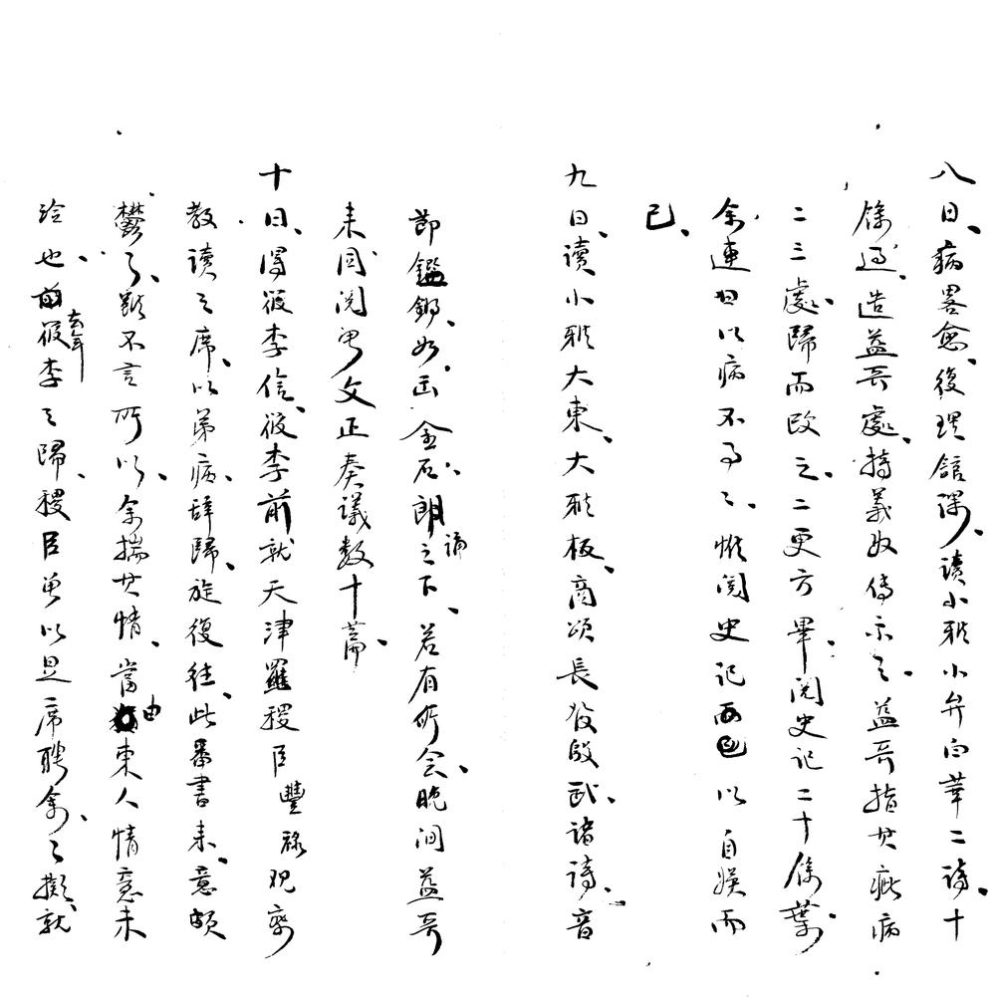 八日、病畧愈、復理舘課、讀小雅小弁白華二詩、十
餘過、造益哥處、持義奴傳示之、益哥指其疵病
二三處、歸而改之、二更方畢、閱史記二十餘葉、
余連日以病不事々、惟閱史記西以自娛而
已、
九日、讀小雅大東、大雅板、商頌長發殷武、諸詩、音
節鏗鏘、如出金石、朗誦之下、若有所會、晚间益哥
來同閱曾文正奏議數十篇、
十日、得筱李信、筱李前就天津羅稷臣豐祿观察
教讀之席、以弟病辞歸、旋復往、此番書來、意頗
鬱々、雖不言所以、余揣其情、當由東人情意未
洽也、去年筱李之歸、稷臣曾以是席聘余、々擬就